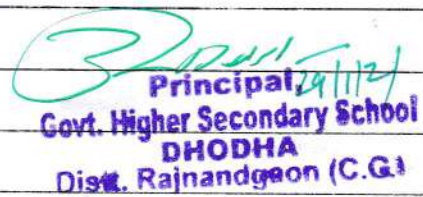 Principal,
29/1/21
Govt. Higher Secondary School
DHODHA
Distt. Rajnandgaon (C.G.)